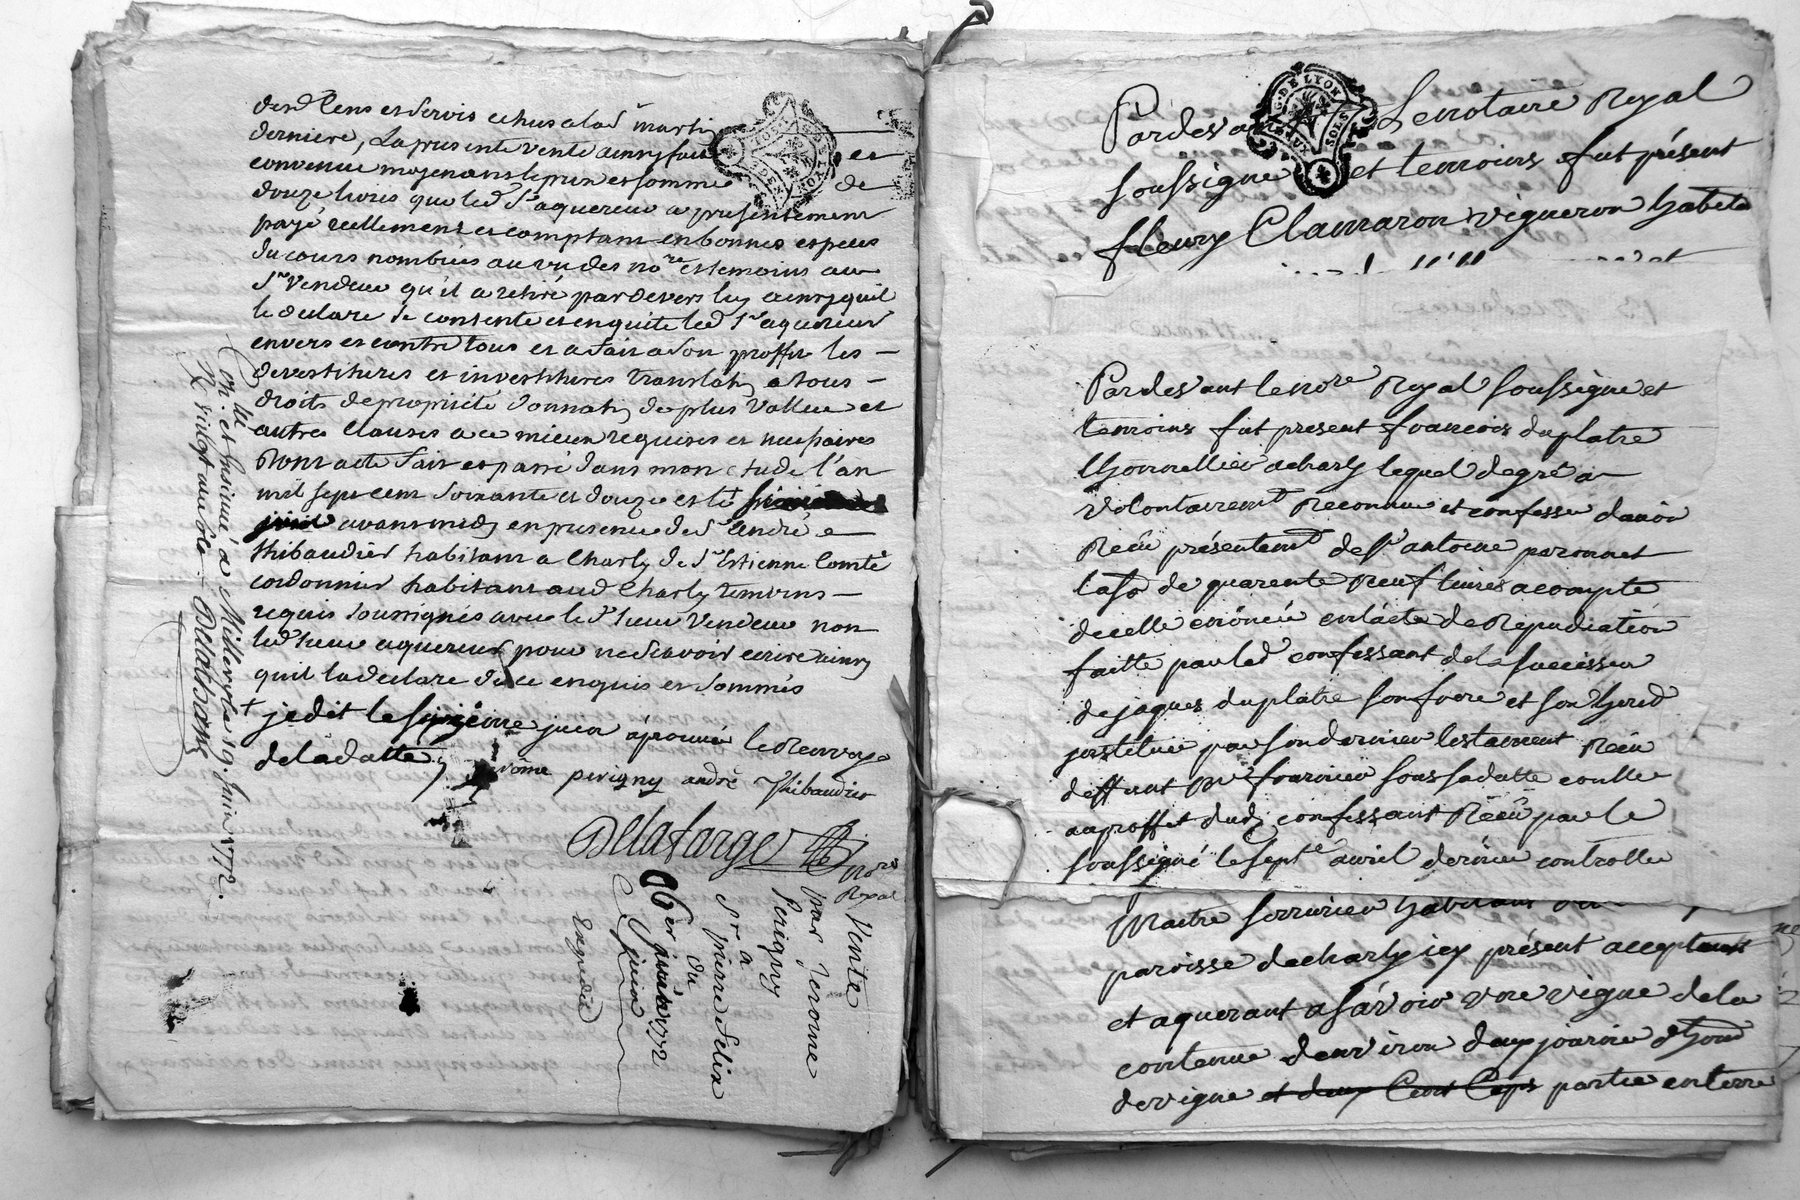 dend Cens et servis echus a la st martin
derniere, La presente vente ainsy faite et
convenue moyenans le prix et somme de
douze livres que led sr aquereur a presentement
payé reellement et comptam en bonnes especes
du cours nombrées au vu des nore et temoins au
sr Vendeur qu'il a retiré pardevers luy ainsy quil
le declare se contente et enquite led sr aquereur
envers et contre tous et a fait a son proffit les
devestitures et investitures translatn a tous
droits de proprieté donnatn de plus vallue et
autres clauses a ce mieux requises et necessaires
Dont acte fait et passé dans mon etude l'an
mil sept cent soixante et douze et le
avant midy en presence de sr andré
thibaudier habitant a Charly de sr Estienne Comte
cordonnier habitant aud Charly temoins
requis soussignés avec led sieur Vendeur non
led sieur aquereur pour ne scavoir ecrire ainsy
quil la declare de ce enquis et sommés
+ je dit le sixième juin áprouué le Renvoye
de la datte
perigny andrè Thibaudier
Delafarge nore
Royal
Vente
par Jerome
Perigny
a
sr pierre Felix
du
6er juin 1772
juin
Expedié
Con.llé et insinué a Millery le 19. Juin 1772.
Pardevant Le notaire Royal
soussigné et temoins fut présent
fleury Clamaron vigneron habita
Pardevant le nore Royal soussigné et
temoins fut present francois duplatre
thonnellier a charly lequel de gré a
volontairemt Reconnu et confessé davoir
Reçu présentemt de sr antoine peronnet
la so de quarente neuf livres a compte
de celle énöncée en lácte de Répudiation
faitte par led confessant de la succession
de jaques duplatre son frere et son hered
institué par son dernier testament Reçu
deffunt Me fournier sous sa datte conllé
au proffit dudt confessant Réçu par le
soussigné le septe avril dernier controllé
Maitre serrurier habitant
paroisse de charly icy présent acceptant
et aquerant a sávoir une vigne de la
contenue d'environ deux journées d'hom
de vigne et deux Cent Ceps partie en terre